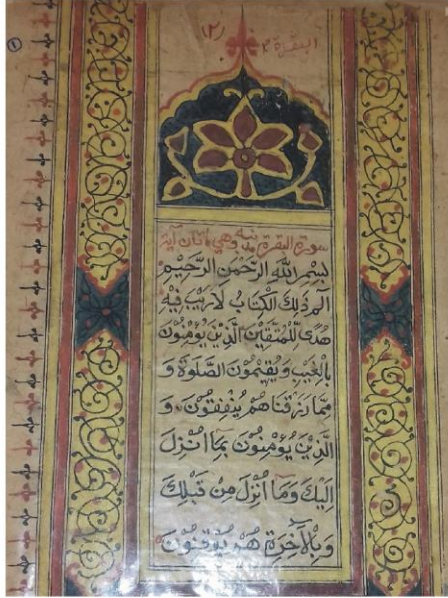 البقرة ٢
(٢)
سورة البقرة مدنية وهي مائتان آية
بِسْمِ اللَّهِ الرَّحْمٰنِ الرَّحِيْمِ
الٓمّ ذٰلِكَ الْكِتَابُ لَا رَيْبَ فِيْهِ
هُدًى لِّلْمُتَّقِيْنَ الَّذِيْنَ يُؤْمِنُوْنَ
بِالْغَيْبِ وَيُقِيْمُوْنَ الصَّلٰوةَ وَ
مِمَّا رَزَقْنَاهُمْ يُنْفِقُوْنَ وَ
الَّذِيْنَ يُؤْمِنُوْنَ بِمَا اُنْزِلَ
اِلَيْكَ وَمَا اُنْزِلَ مِنْ قَبْلِكَ
وَبِالْاٰخِرَةِ هُمْ يُوْقِنُوْنَ